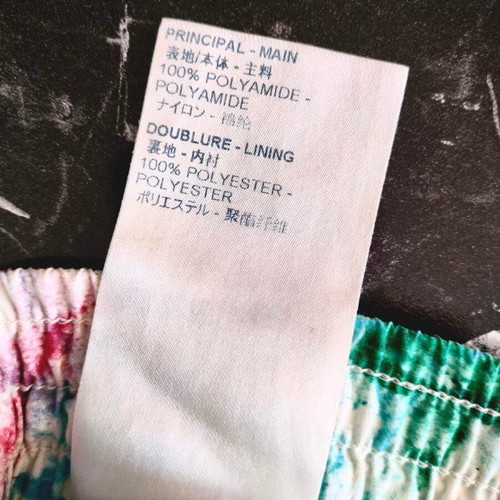 PRINCIPAL - MAIN
表地/本体 - 主料
100% POLYAMIDE -
POLYAMIDE
ナイロン - 锦纶
DOUBLURE - LINING
裏地 - 内衬
100% POLYESTER -
POLYESTER
ポリエステル - 聚酯纤维